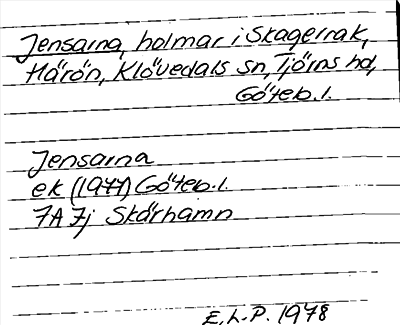 Jensarna, holmar i Skagerrak,
Härön, Klövedals sn, Tjörns hd,
Göteb. l.
Jensarna
ek (1977) Göteb. l.
7A 7j Skärhamn
E. L-P. 1978